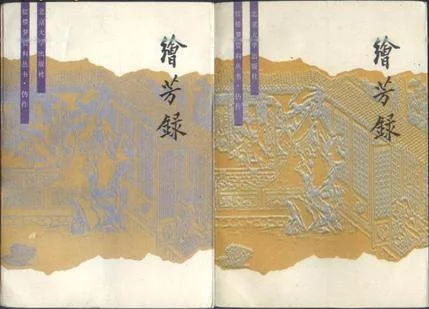 北京大学出版社
红楼梦资料丛书·仿作
繪芳録
北京大学出版社
红楼梦资料丛书·仿作
繪芳録